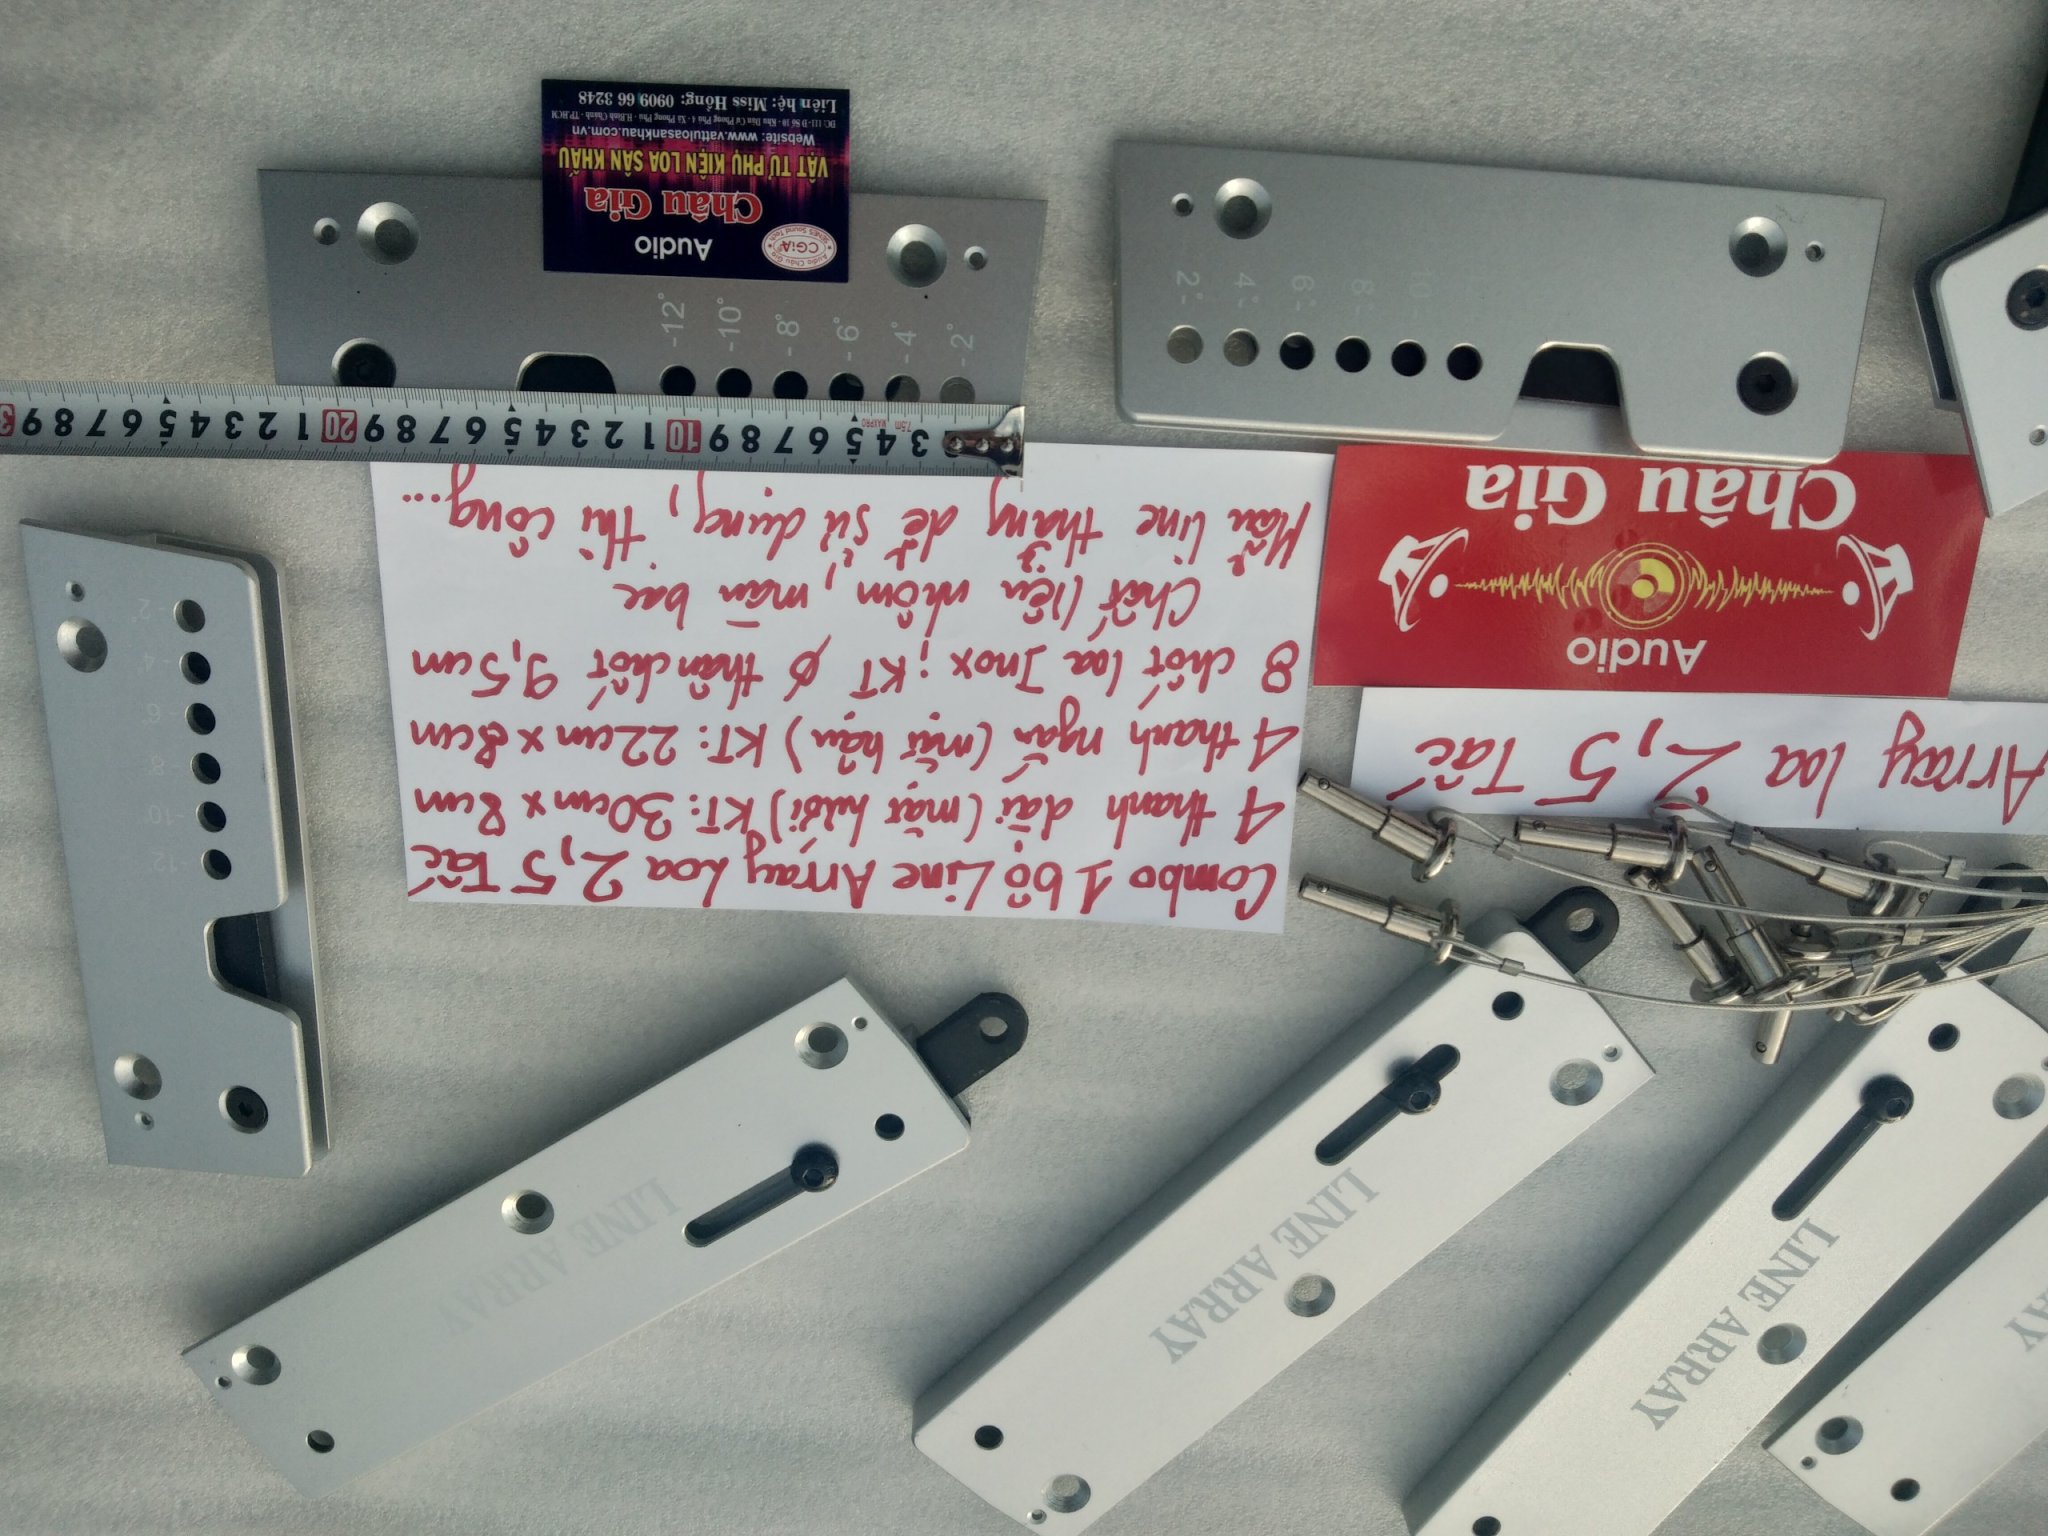 Combo 1 bộ Line Array Loa 2,5 Tấc
4 thanh dài (mặt lưới) KT: 30cm x 8cm
4 thanh ngắn (mặt hậu) KT: 22cm x 8cm
8 chốt loa Inox; KT ϕ thân chốt 9,5cm
Chất liệu nhôm, màu bạc
Mẫu line thẳng dễ sử dụng, thi công...
Array loa 2,5 Tấc
Audio
Châu Gia
Audio
Châu Gia
VẬT TƯ PHỤ KIỆN LOA SÂN KHẤU
Website: www.vattuloasankhau.com.vn
ĐC: 111-D Số 10 - Khu Dân Cư Phong Phú 4 - Xã Phong Phú - H.Bình Chánh - TP.HCM
Liên hệ: Miss Hồng: 0909 66 3248
CGiA
-2° -4° -6° -8° -10° -12°
2° 4° 6° 8°
-2° -4° 6° -8° -10° 12°
7.5m MAXPRO
3 4 5 6 7 8 9 10 1 2 3 4 5 6 7 8 9 20 1 2 3 4 5 6 7 8 9 3
LINE ARRAY
LINE ARRAY
LINE ARRAY